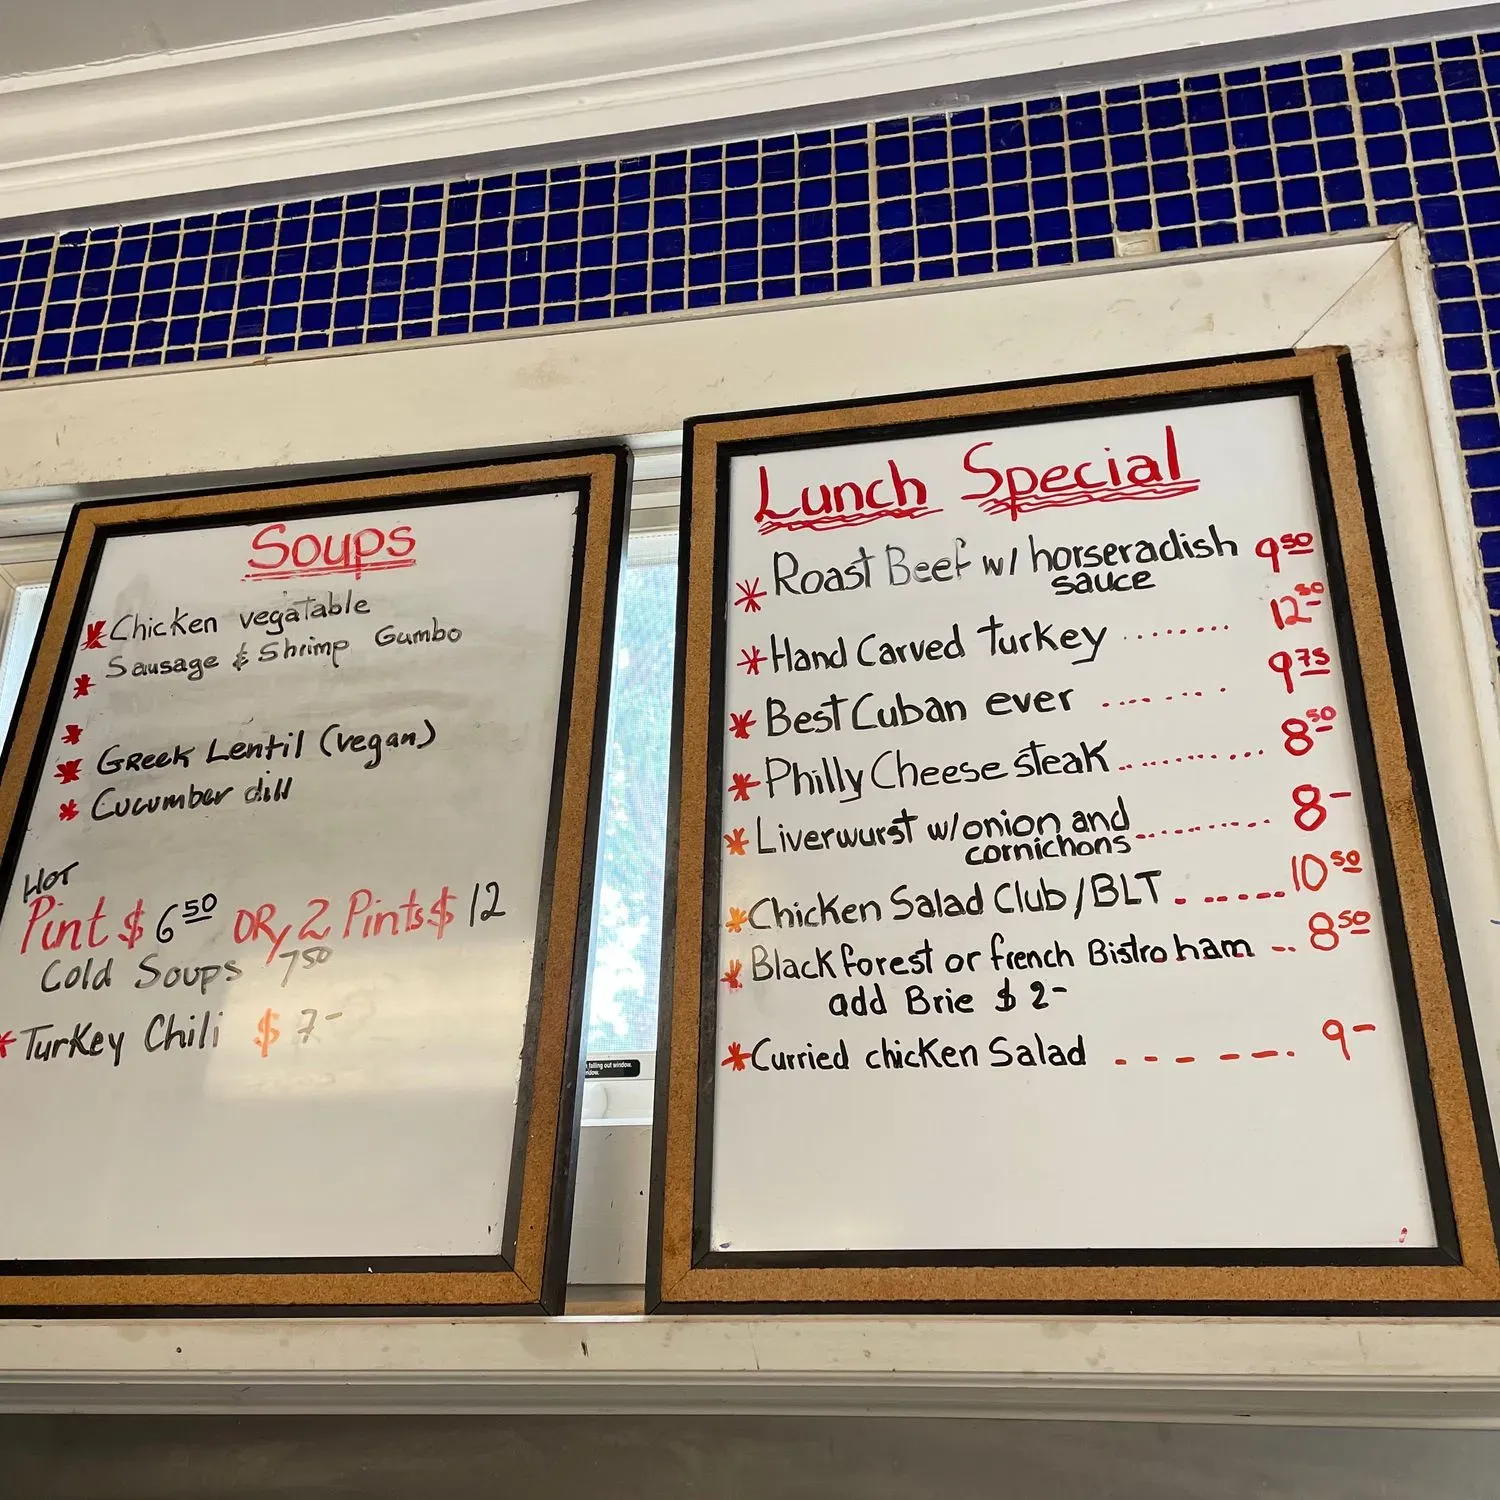 Soups
* Chicken vegatable
* Sausage & Shrimp Gumbo
*
* Greek Lentil (vegan)
* Cucumber dill
Hot
Pint $ 6 50 OR, 2 Pints $ 12
Cold Soups 7 50
* Turkey Chili $ 7-
falling out window.
Lunch Special
* Roast Beef w/ horseradish 9 50
sauce
* Hand Carved Turkey ........ 12 50
* Best Cuban ever ........ 9 75
* Philly Cheese steak ............ 8 50
* Liverwurst w/onion and
cornichons ............ 8-
* Chicken Salad Club / BLT . ...... 10 50
* Black forest or french Bistro ham -- 8 50
add Brie $ 2-
* Curried chicken Salad - - - - - - . 9-